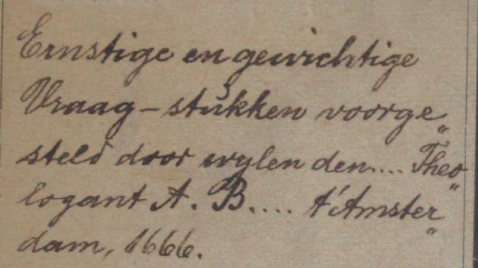 Ernstige en gewichtige
Vraag-stukken voorge„
steld door wylen den.... Theo„
logant A. B.... t'Amster„
dam, 1666.